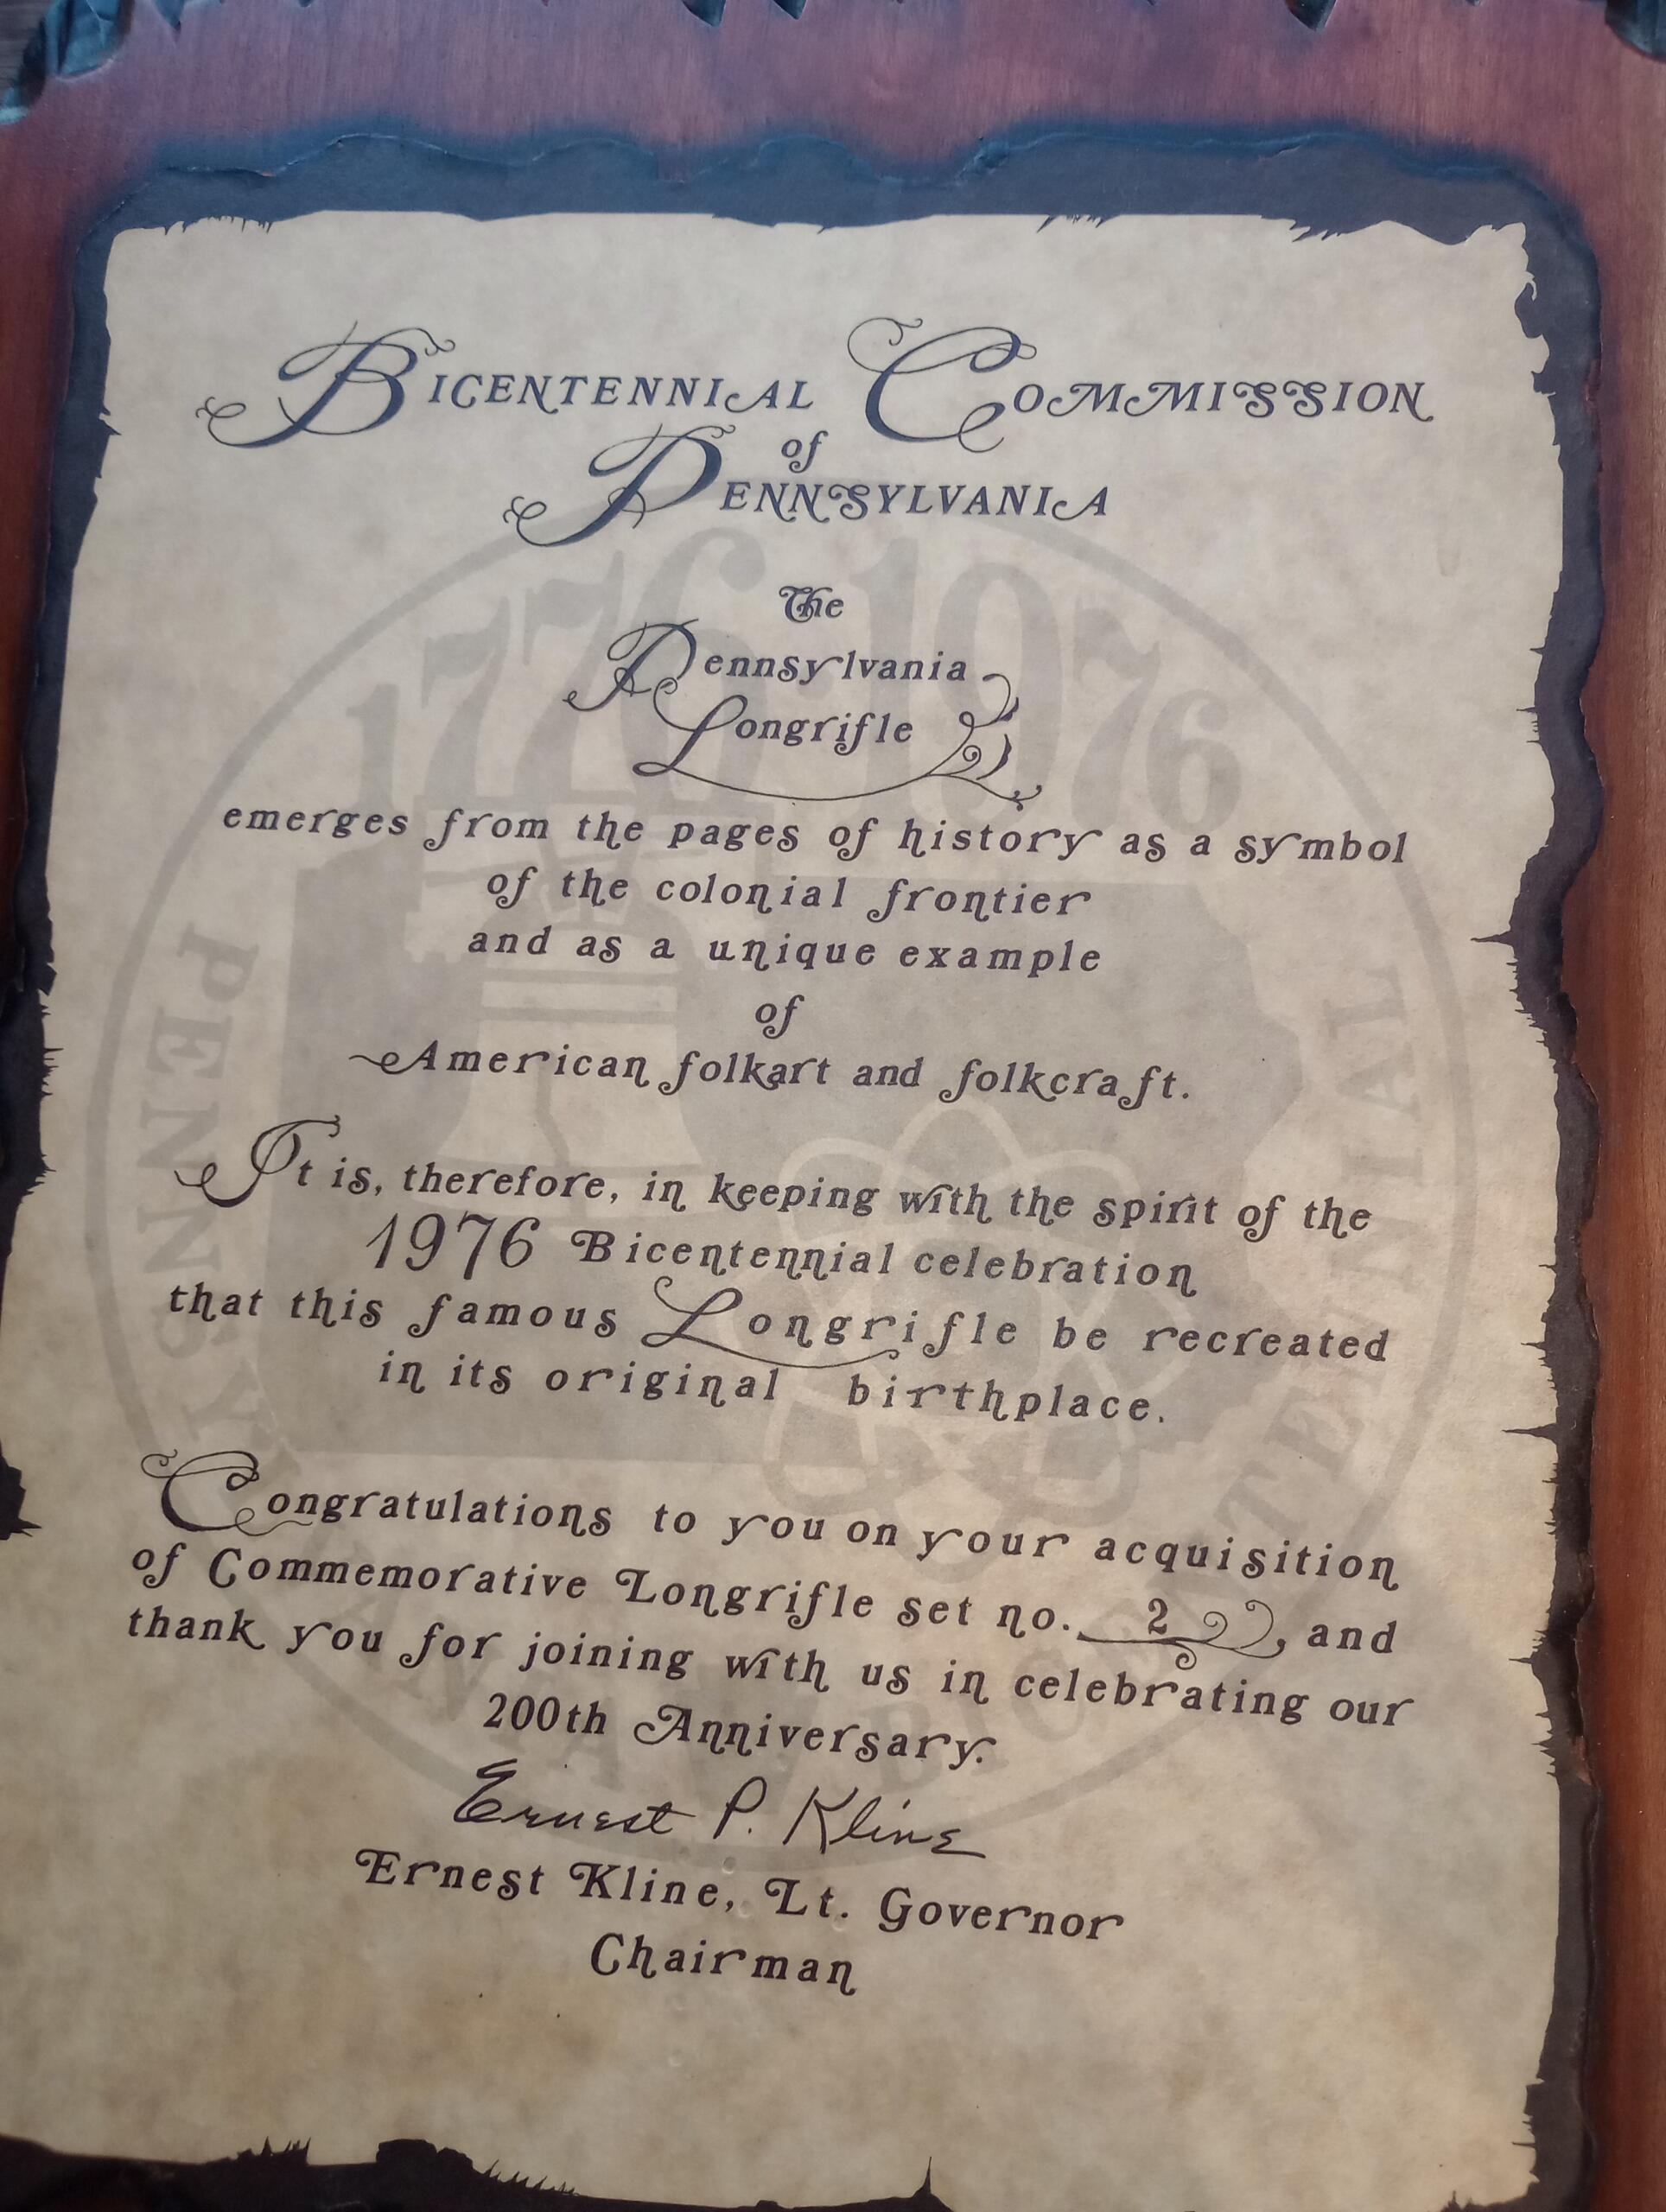 BICENTENNIAL COMMISSION
of
PENNSYLVANIA
1776 1976
The
Pennsylvania
Longrifle
emerges from the pages of history as a symbol
of the colonial frontier
and as a unique example
of
American folkart and folkcraft.
It is, therefore, in keeping with the spirit of the
1976 Bicentennial celebration
that this famous Longrifle be recreated
in its original birthplace.
Congratulations to you on your acquisition
of Commemorative Longrifle set no. 2, and
thank you for joining with us in celebrating our
200th Anniversary.
Ernest P. Kline
Ernest Kline, Lt. Governor
Chairman
PENNSYLVANIA BICENTENNIAL